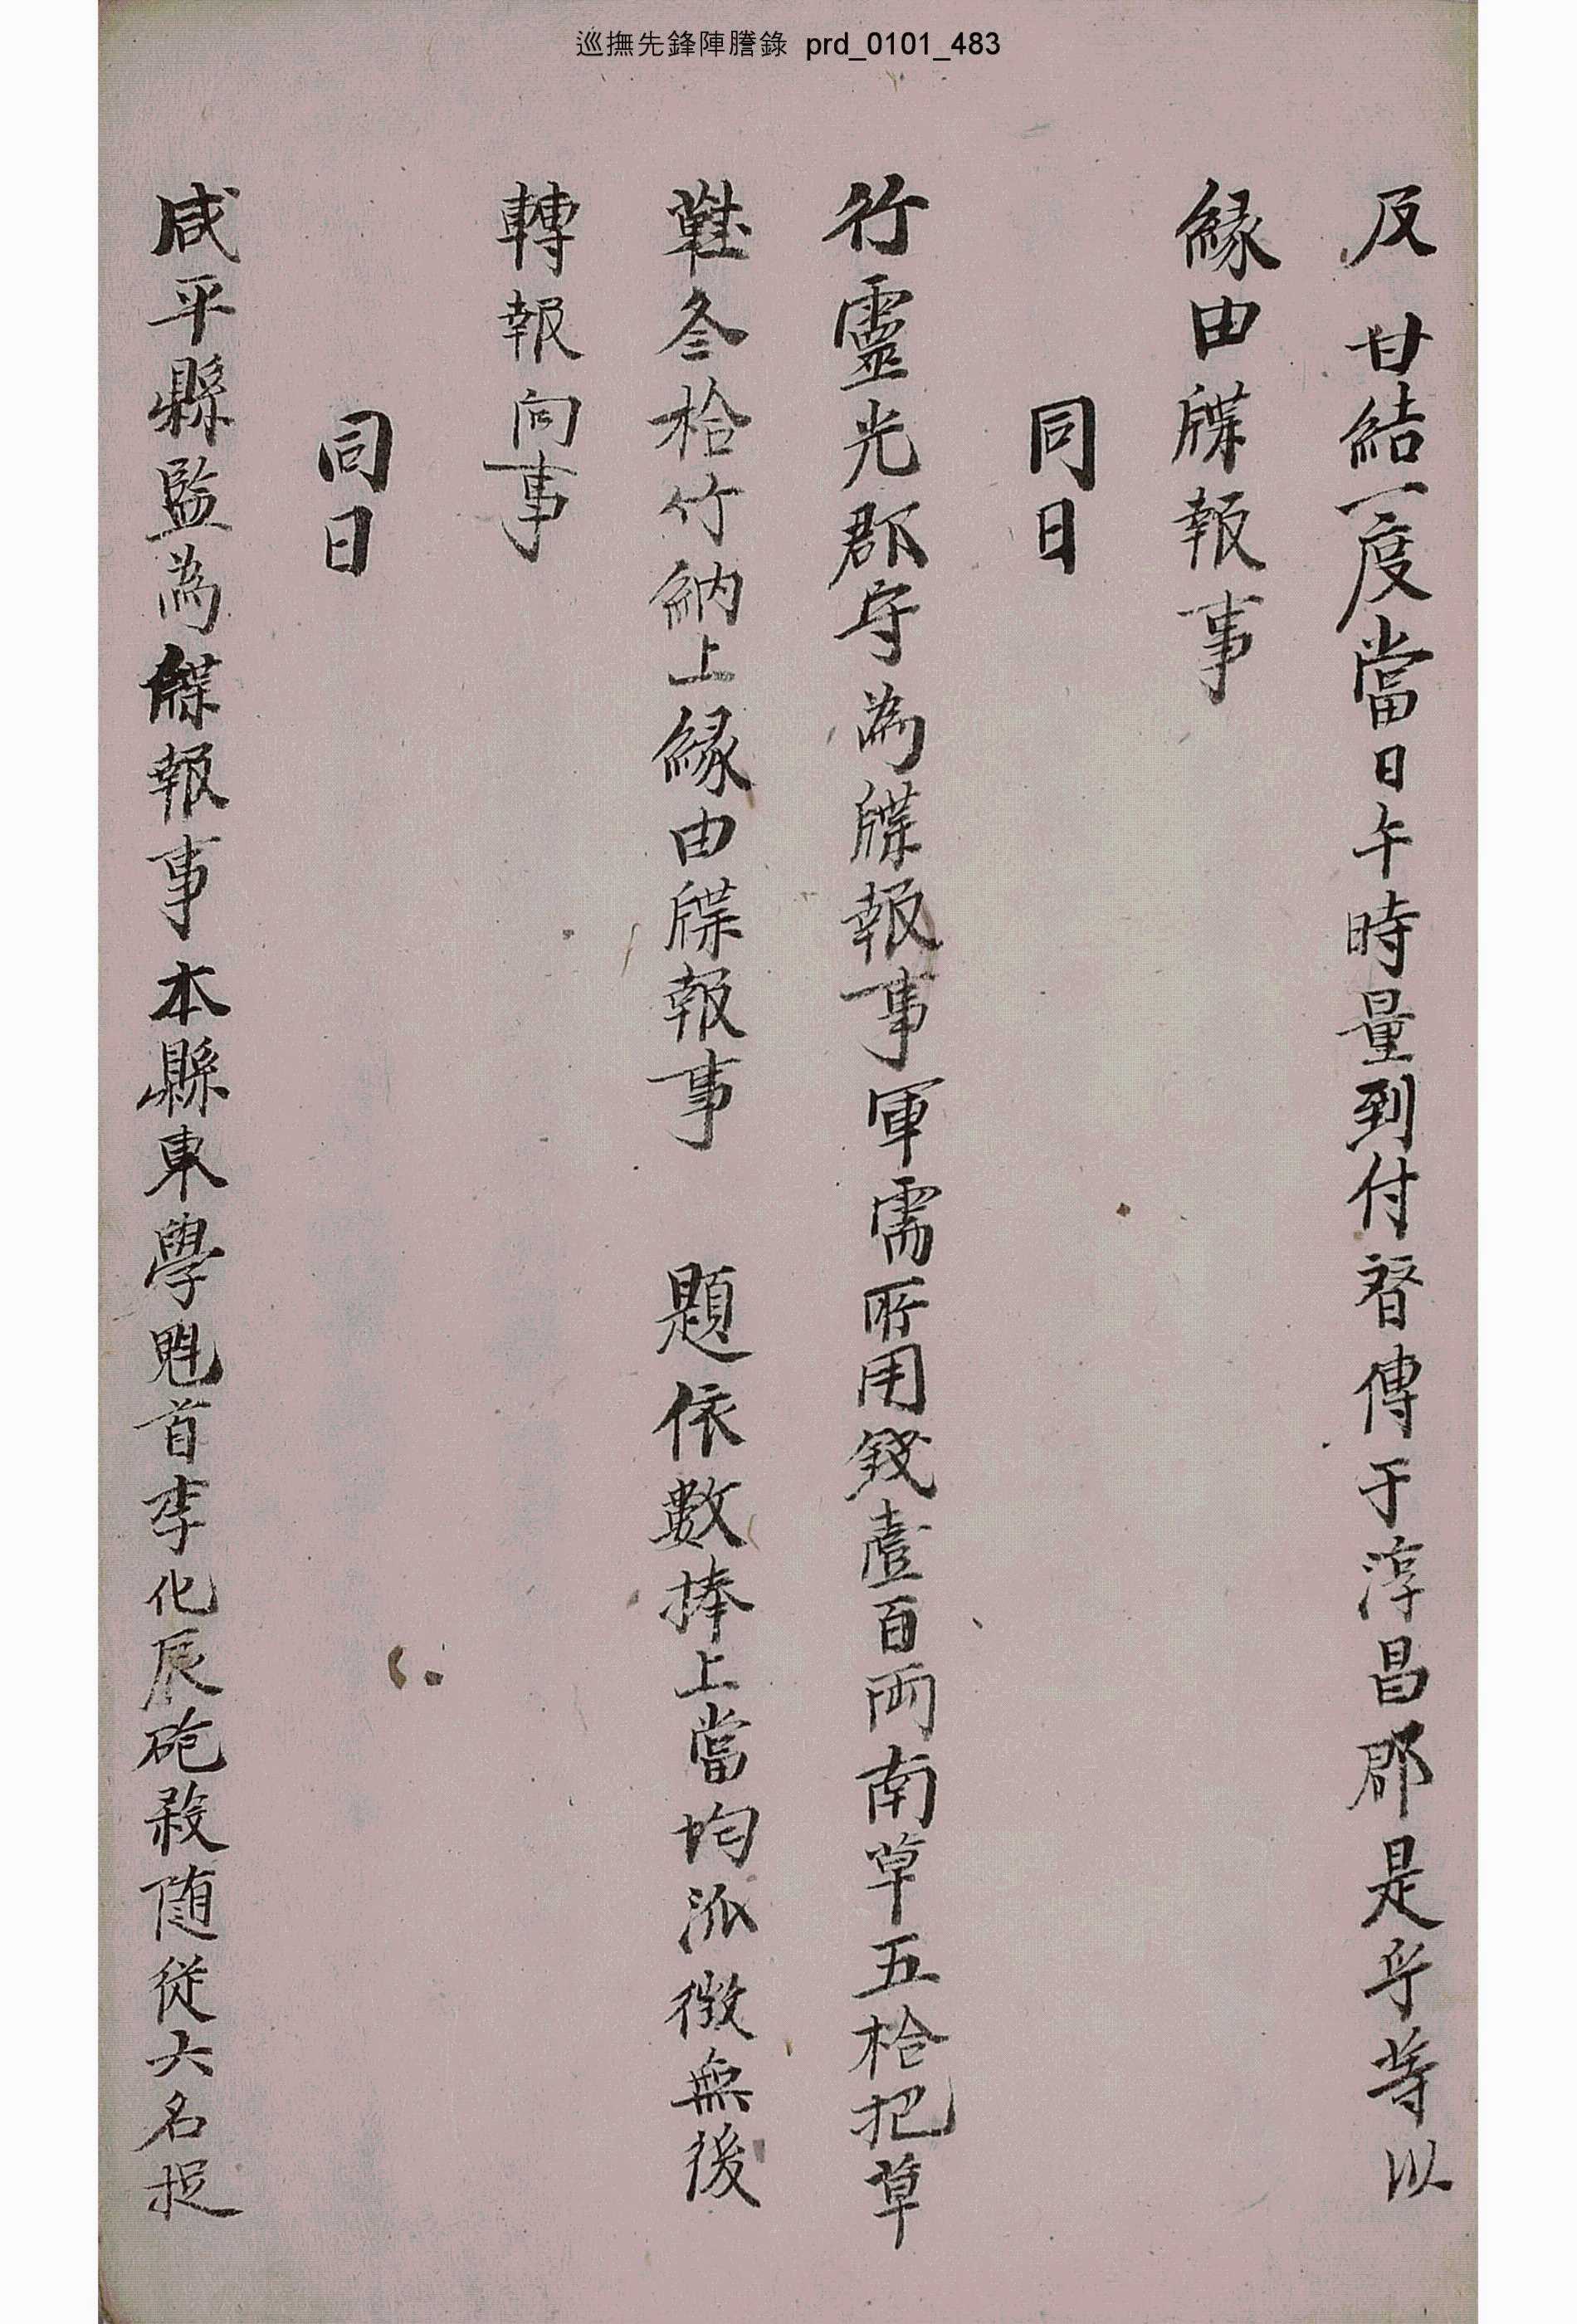 巡撫先鋒陣謄錄 prd_0101_483
及 甘結一度當日午時量到付督傳于淳昌郡是乎等以
緣由牒報事
同日
行靈光郡守為牒報事軍需所用錢壹百兩南草五拾把草
鞋冬拾竹納上緣由牒報事 題依數捧上當均派徵無後
轉報向事
同日
咸平縣監為牒報事本縣東學魁首李化辰砲殺隨從六名捉